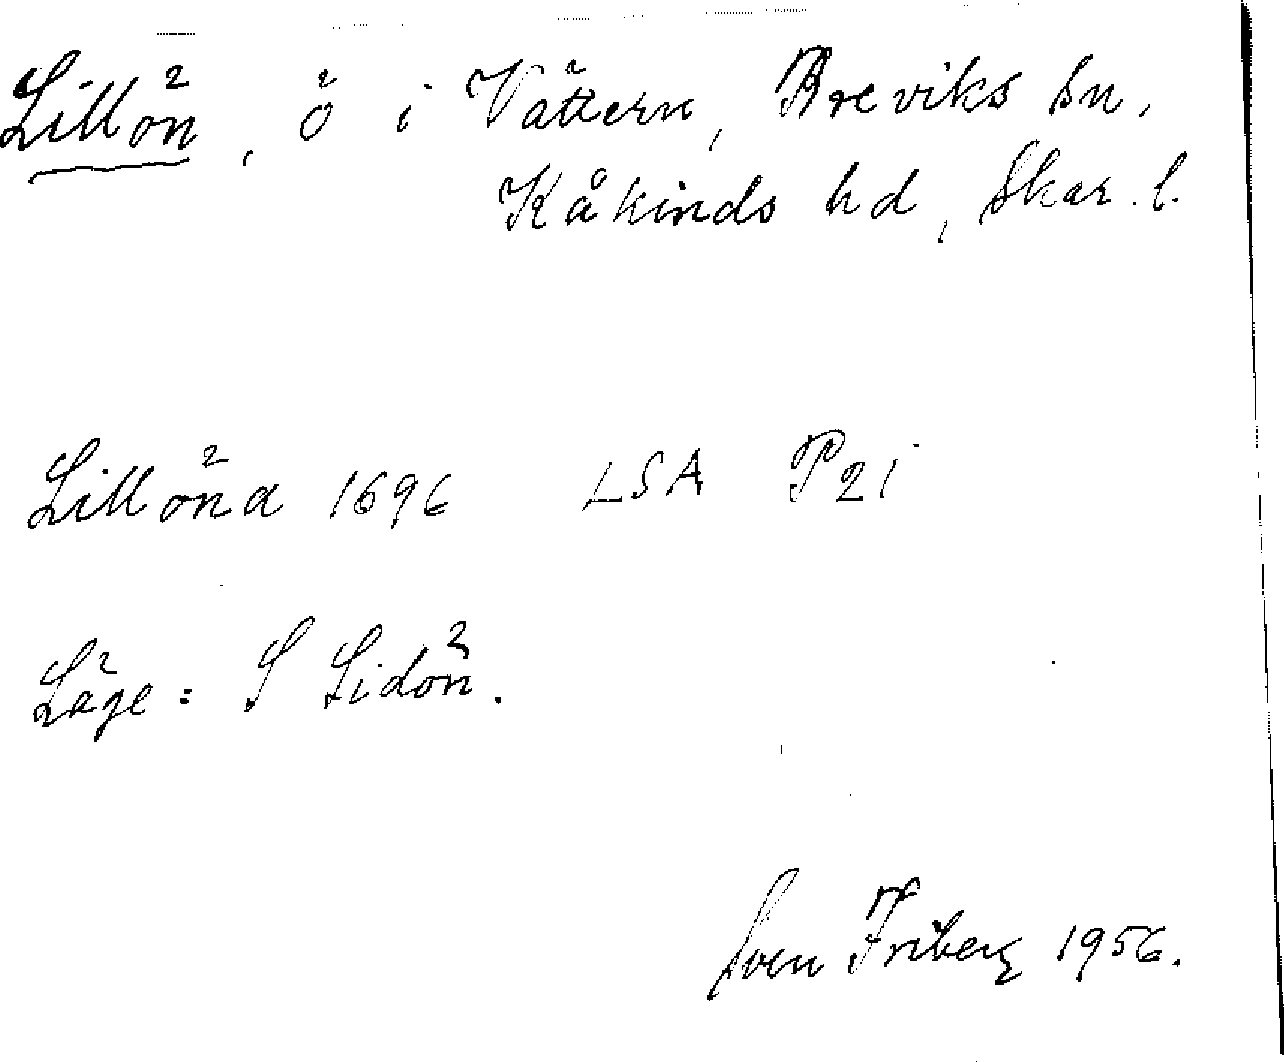 Lillön, ö i Vättern, Breviks sn,
Kåkinds hd, Skar. l.
Lillöna 1696 LSA P21
Läge: S Lidön.
Sven Friberg 1956.